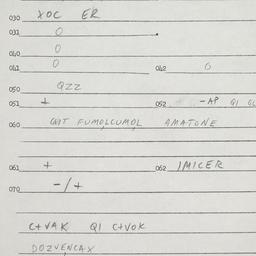 030 XOC ER
031 0
040 0
041 0 042 0
050 QZZ
051 + 052 -AP QI
060 QAT FUMOLCUMOL AMATONE
061 + 062 IMICER
070 -/+
C+VAK QI C+VOK
DOZVENCAX